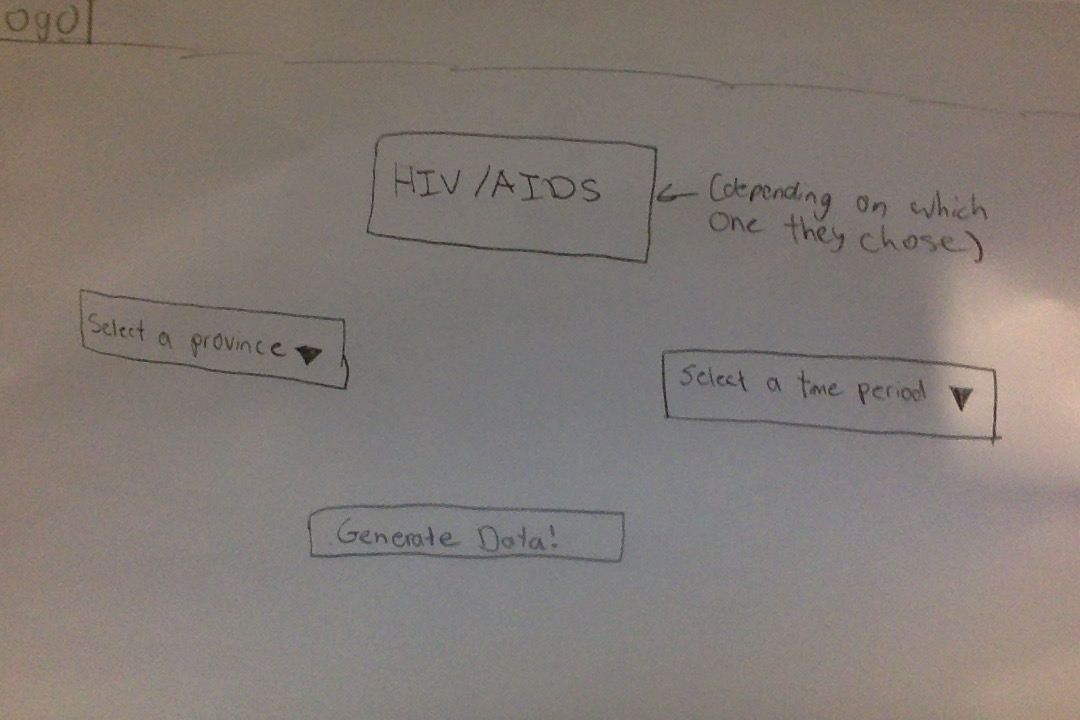 ogo
HIV/AIDS
(depending on which
one they chose)
Select a province
Select a time period
Generate Data!